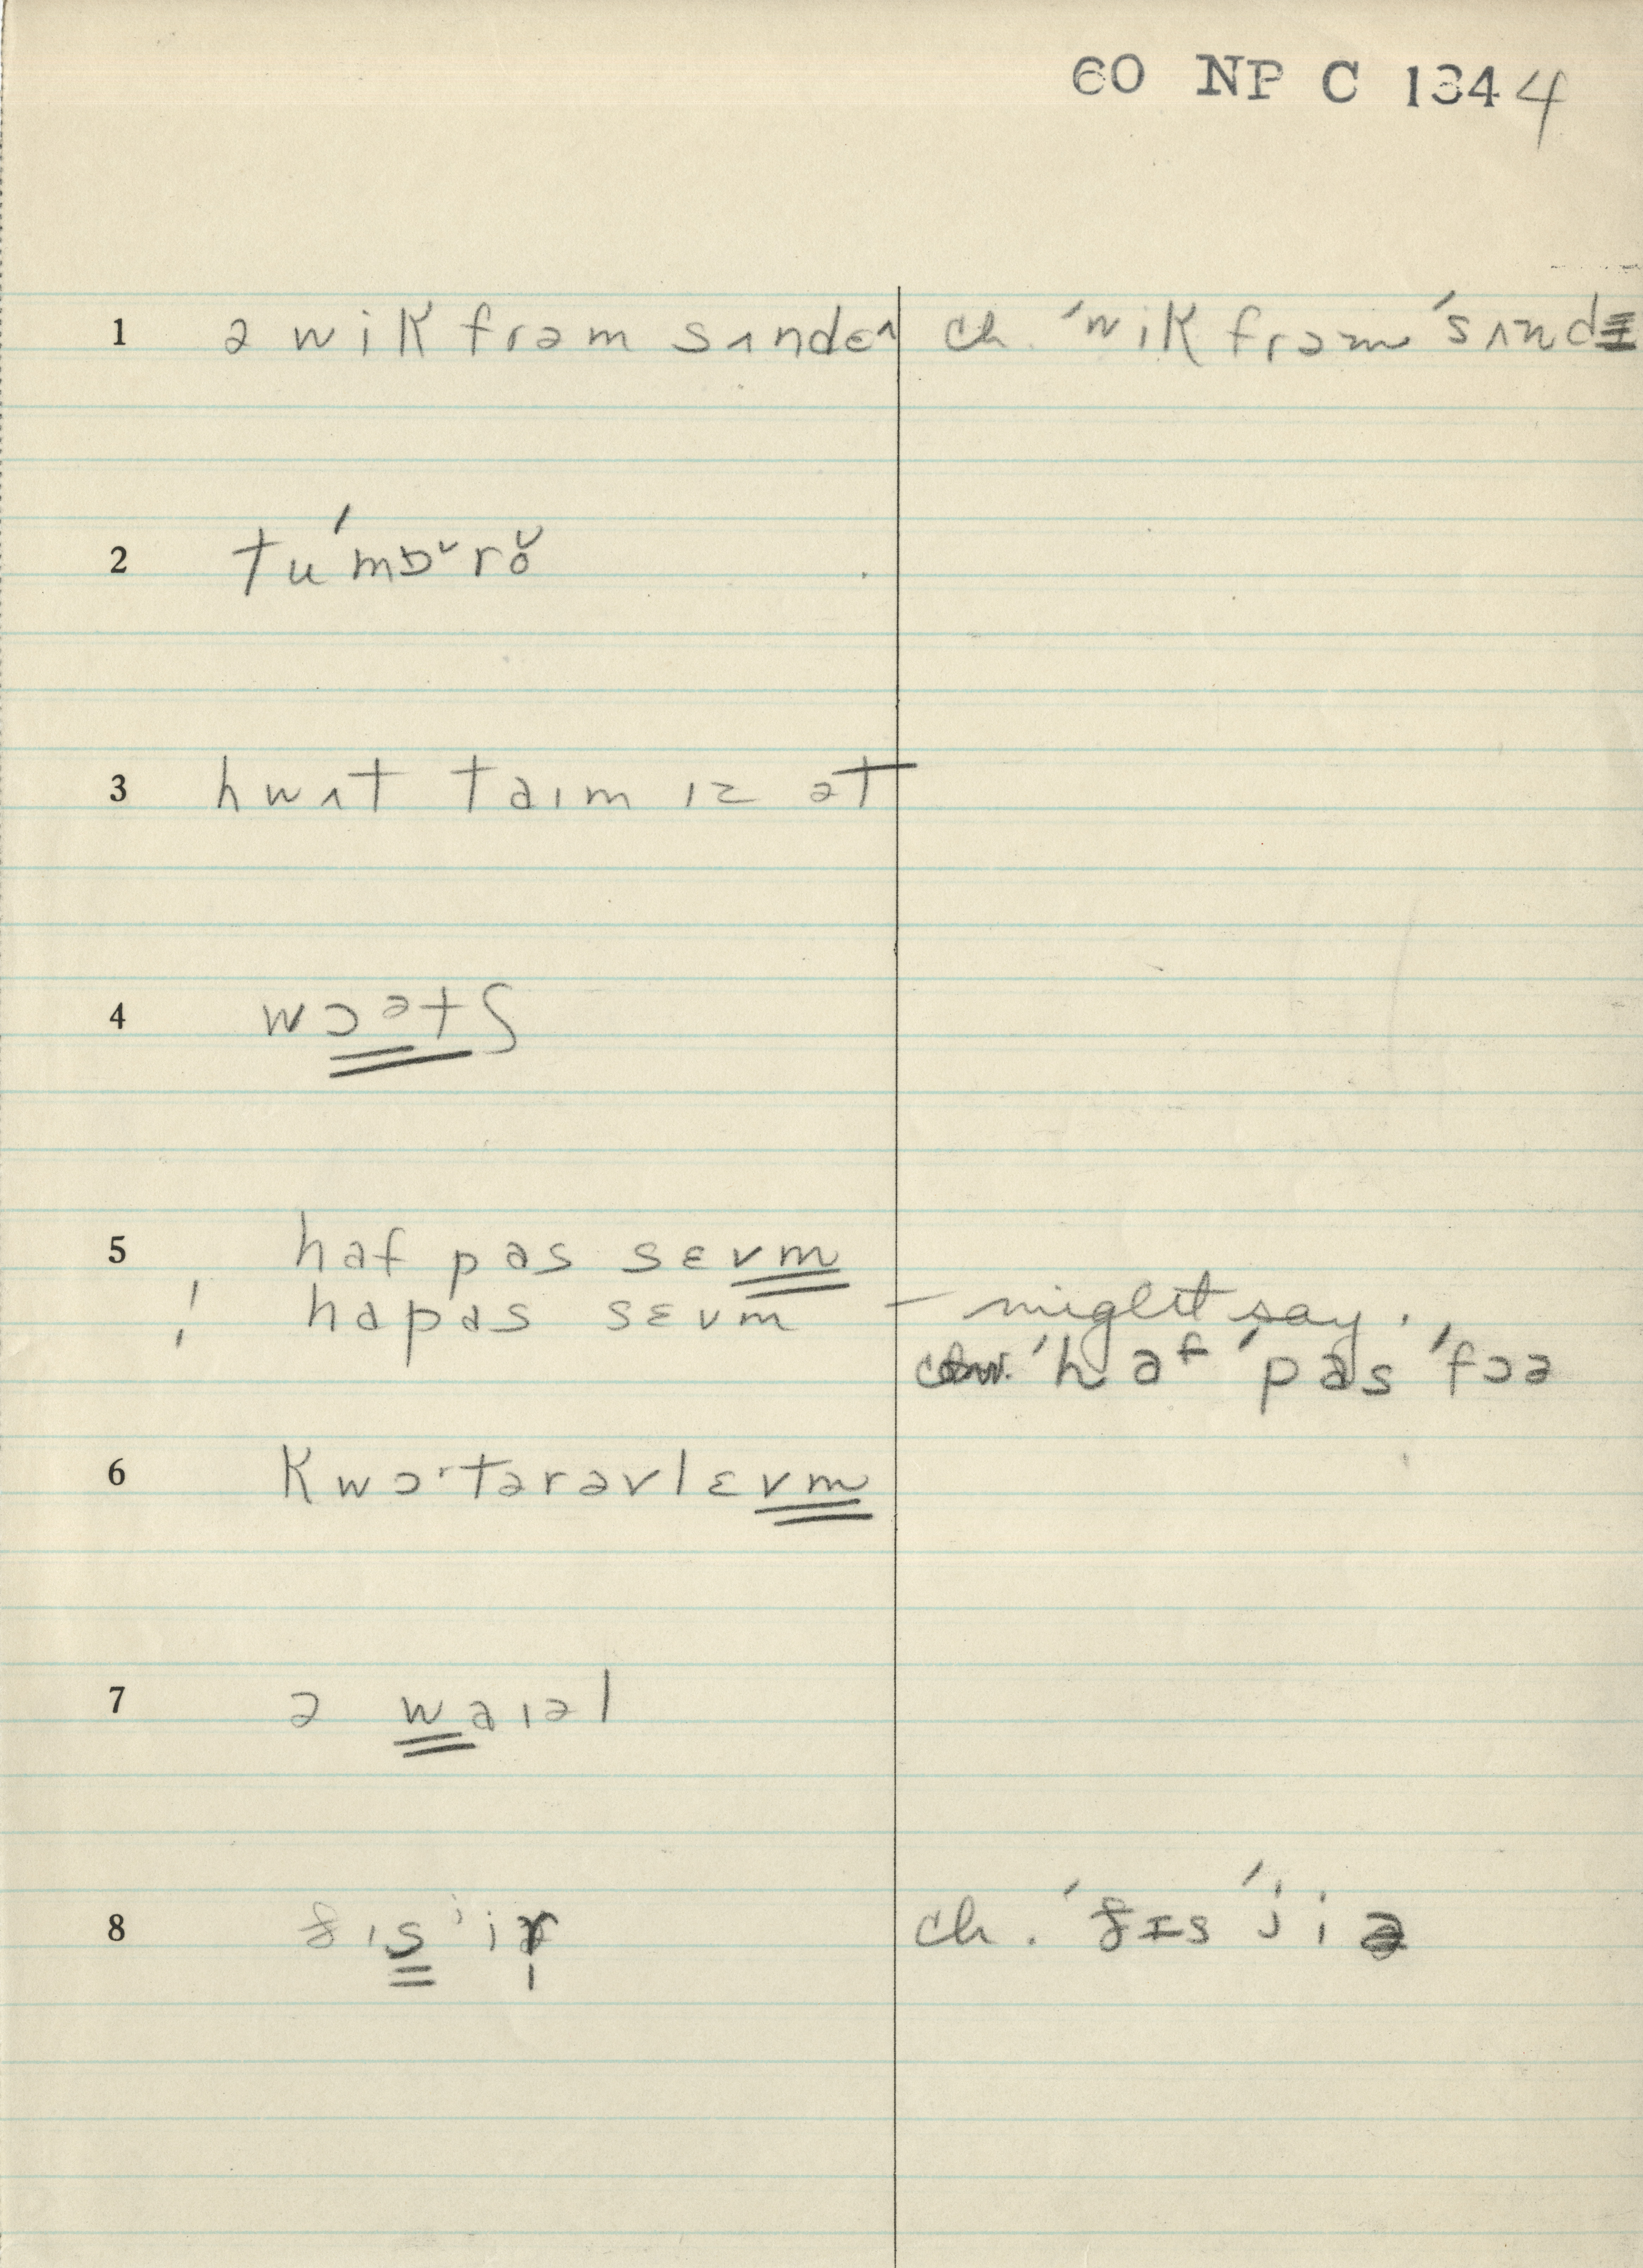 60 NP C 1344
1 ə wik frəm sʌndeɪ ch. ˈwik frəmˈsʌndɪ
2 tuˈmɒˇrŏ
3 hwʌt taɪm ɪz ət
4 wɔətʃ
5 haf pas sɛvm
! hapas sɛvm – might say.
ˈhafˈpasˈfɔə
6 kwɔˑtərəvlɛvm
7 ə waɪəl
8 ðɪsˈjir ch. ˈðɪsˈjiə